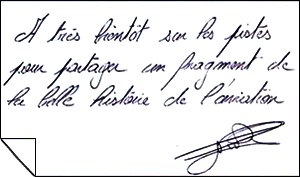 A très bientôt sur les pistes
pour partager un fragment de
la belle histoire de l'aviation